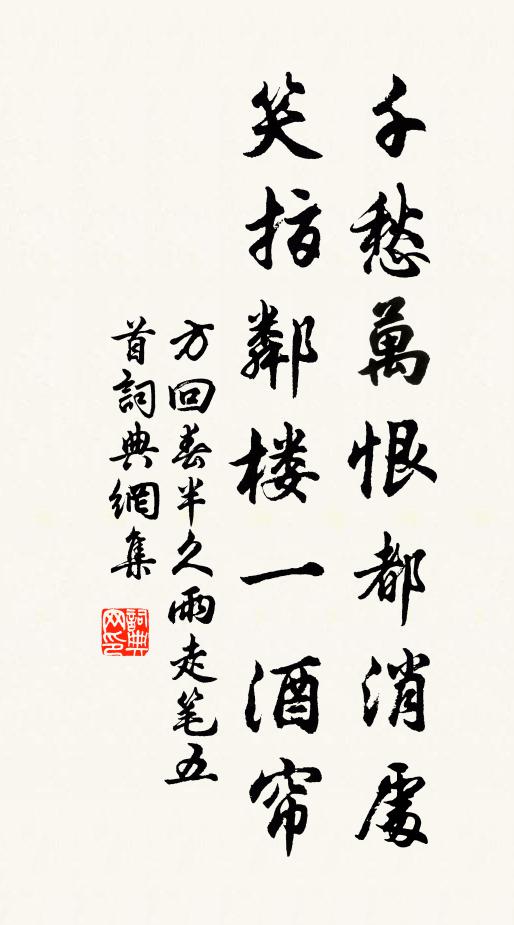 千愁萬恨都消處
笑指鄰楼一酒帘
方回春半久雨走笔五
首詞典網集
詞典
网印